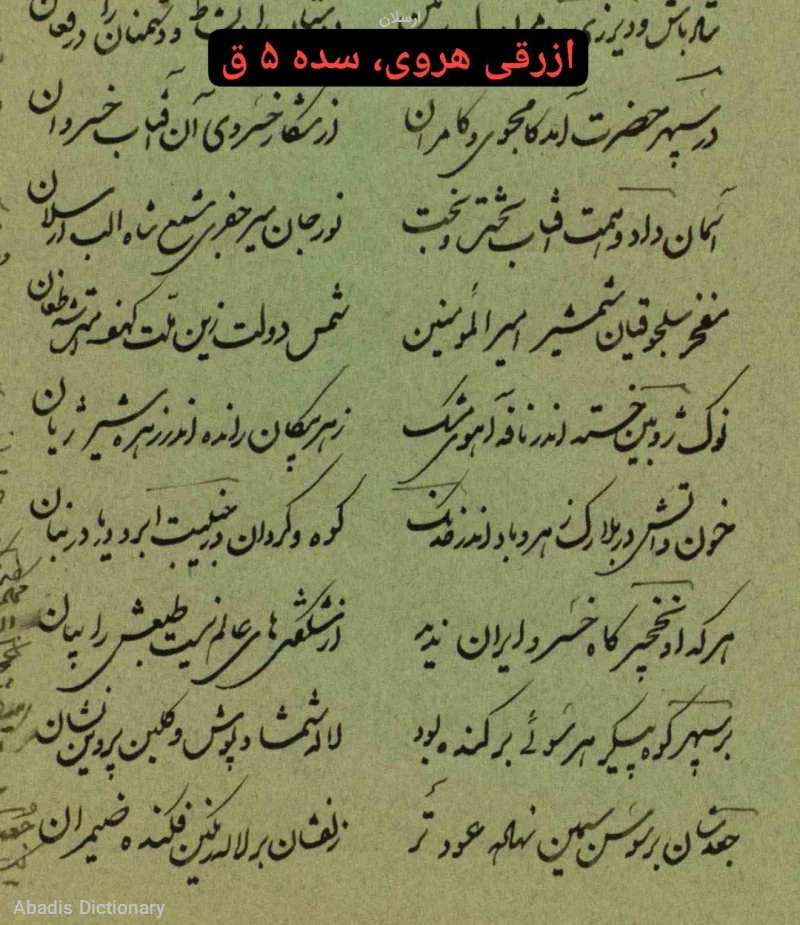 ارسلان
شاه باش و دیر زی
ازرقی هروی، سده ۵ ق
در سپهر حضرت آمد کامجوی و کامران از شکار خسروی آن آفتاب خسروان
آسمان داد و همت آفتاب تخت و بخت نور جان میر جغری شمع شاه الب ارسلان
مفخر سلجوقیان شمشیر امیرالمؤمنین شمس دولت زین ملت کهف امت شه طغان
نوک ژوبین خسته اندر نافه آهوی مشک زهر پیکان رانده اندر زهره شیر ژیان
خون و آتش در بلارک زهر و باد اندر خدنک کوه و گردان در جنیبت ابر و دریا در بنان
هر که او نخچیر کاه خسرو ایران ندید از شگفتی های عالم نیست طبعش را بیان
بر سپهر کوه پیکر هر سوئی بر کنده بود لاله شمشاد پوش و گلبن پروین نشان
جعدشان بر سوسن سیمین نهاده عود تر زلفشان بر لاله رنگین فکنده ضیمران
Abadis Dictionary